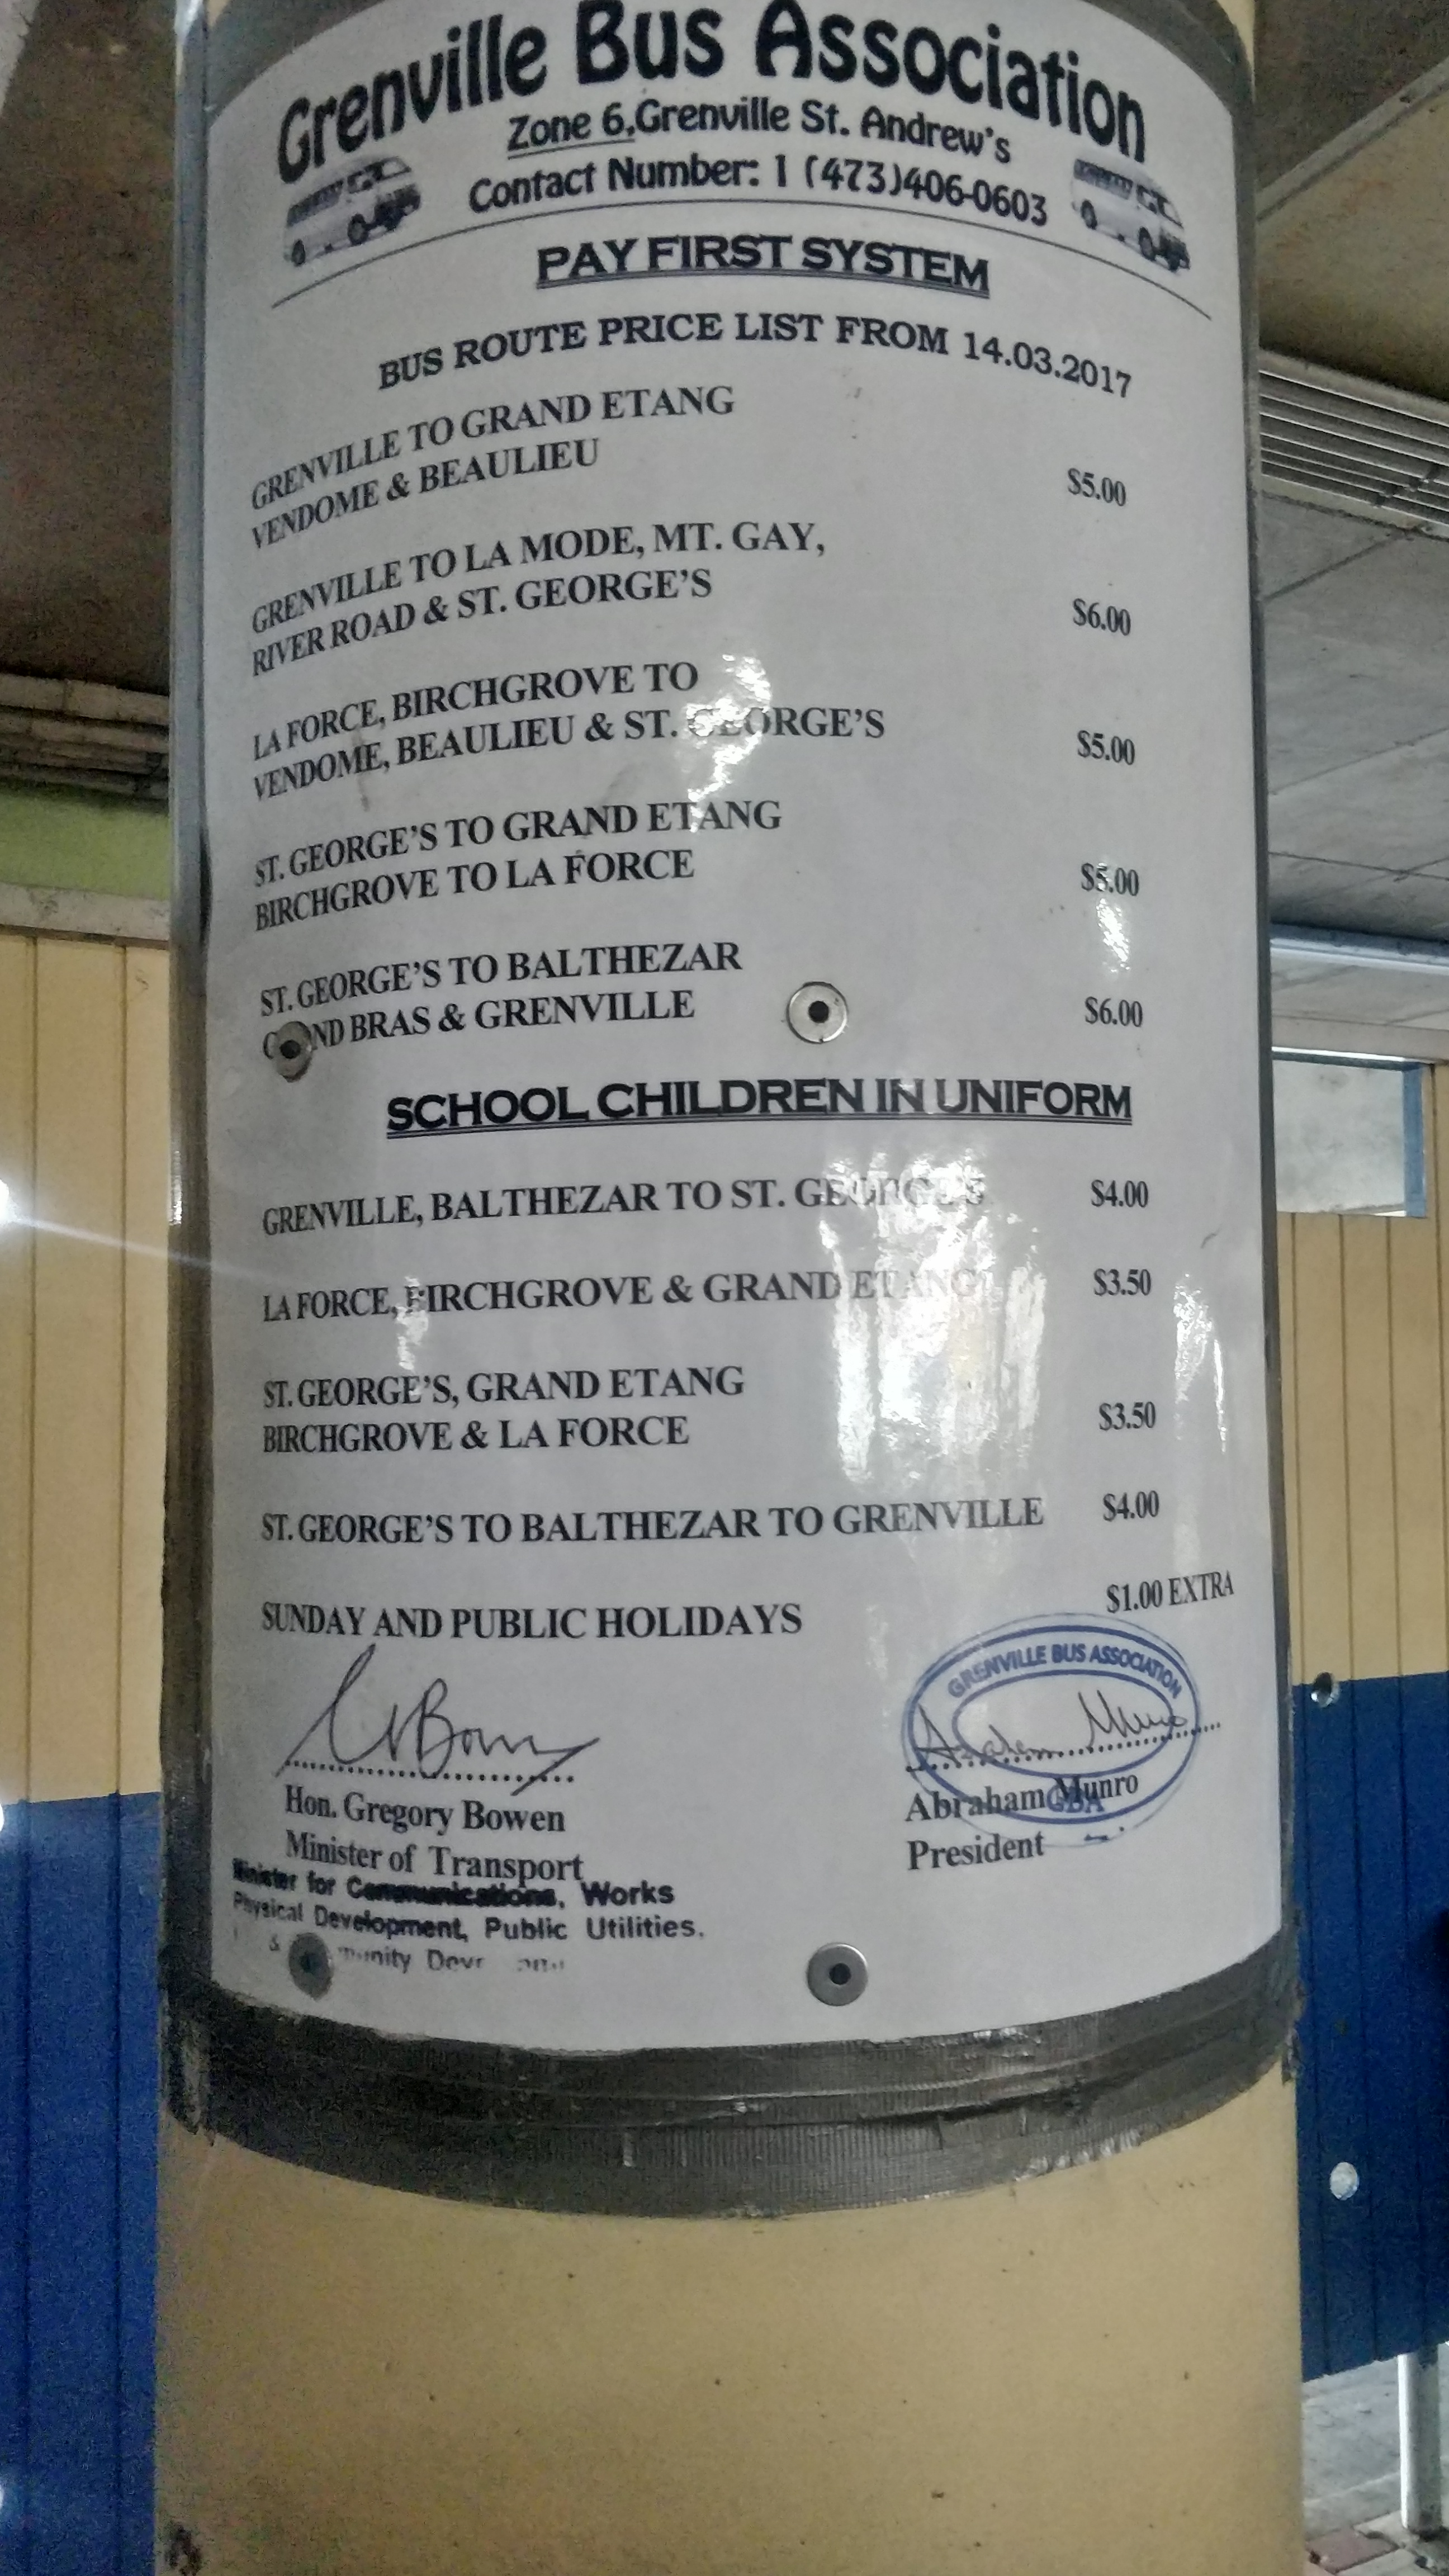 Grenville Bus Association
Zone 6,Grenville St. Andrew's
Contact Number: 1 (473)406-0603
PAY FIRST SYSTEM
BUS ROUTE PRICE LIST FROM 14.03.2017
GRENVILLE TO GRAND ETANG
VENDOME & BEAULIEU $5.00
GRENVILLE TO LA MODE, MT. GAY,
RIVER ROAD & ST. GEORGE'S $6.00
LA FORCE, BIRCHGROVE TO
VENDOME, BEAULIEU & ST. GEORGE'S $5.00
ST. GEORGE'S TO GRAND ETANG
BIRCHGROVE TO LA FORCE $5.00
ST. GEORGE'S TO BALTHEZAR
GRAND BRAS & GRENVILLE $6.00
SCHOOL CHILDREN IN UNIFORM
GRENVILLE, BALTHEZAR TO ST. GEORGE'S $4.00
LA FORCE, BIRCHGROVE & GRAND ETANG $3.50
ST. GEORGE'S, GRAND ETANG
BIRCHGROVE & LA FORCE $3.50
ST. GEORGE'S TO BALTHEZAR TO GRENVILLE $4.00
SUNDAY AND PUBLIC HOLIDAYS $1.00 EXTRA
GRENVILLE BUS ASSOCIATION
GBA
Hon. Gregory Bowen
Minister of Transport
Abraham Munro
President
Minister for Communications, Works
Physical Development, Public Utilities.
&